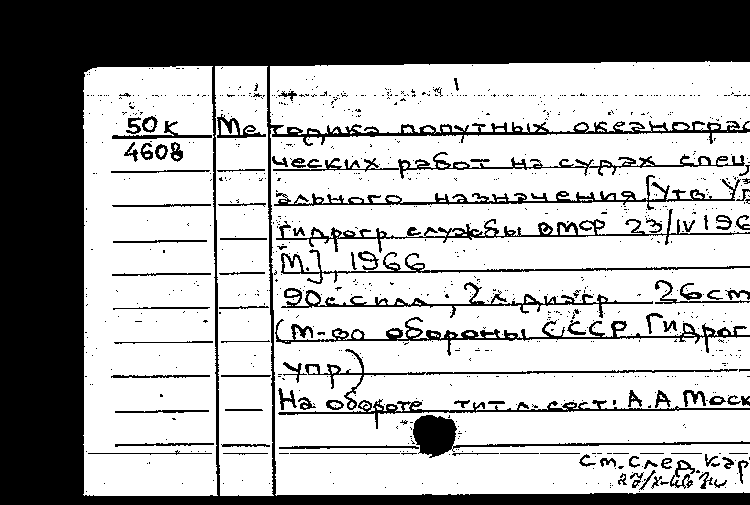 50к Методика попутных океанограф
4608 ческих работ на судах спец
ального назначения [Утв. Уп
гидрогр. службы ВМФ 23/IV 196
М.], 1966
90 с. с илл.; 2 л. диагр. 26 см
(М-во обороны СССР. Гидрог
упр.)
На обороте тит. л. сост.: А.А. Моск
См. след. кар